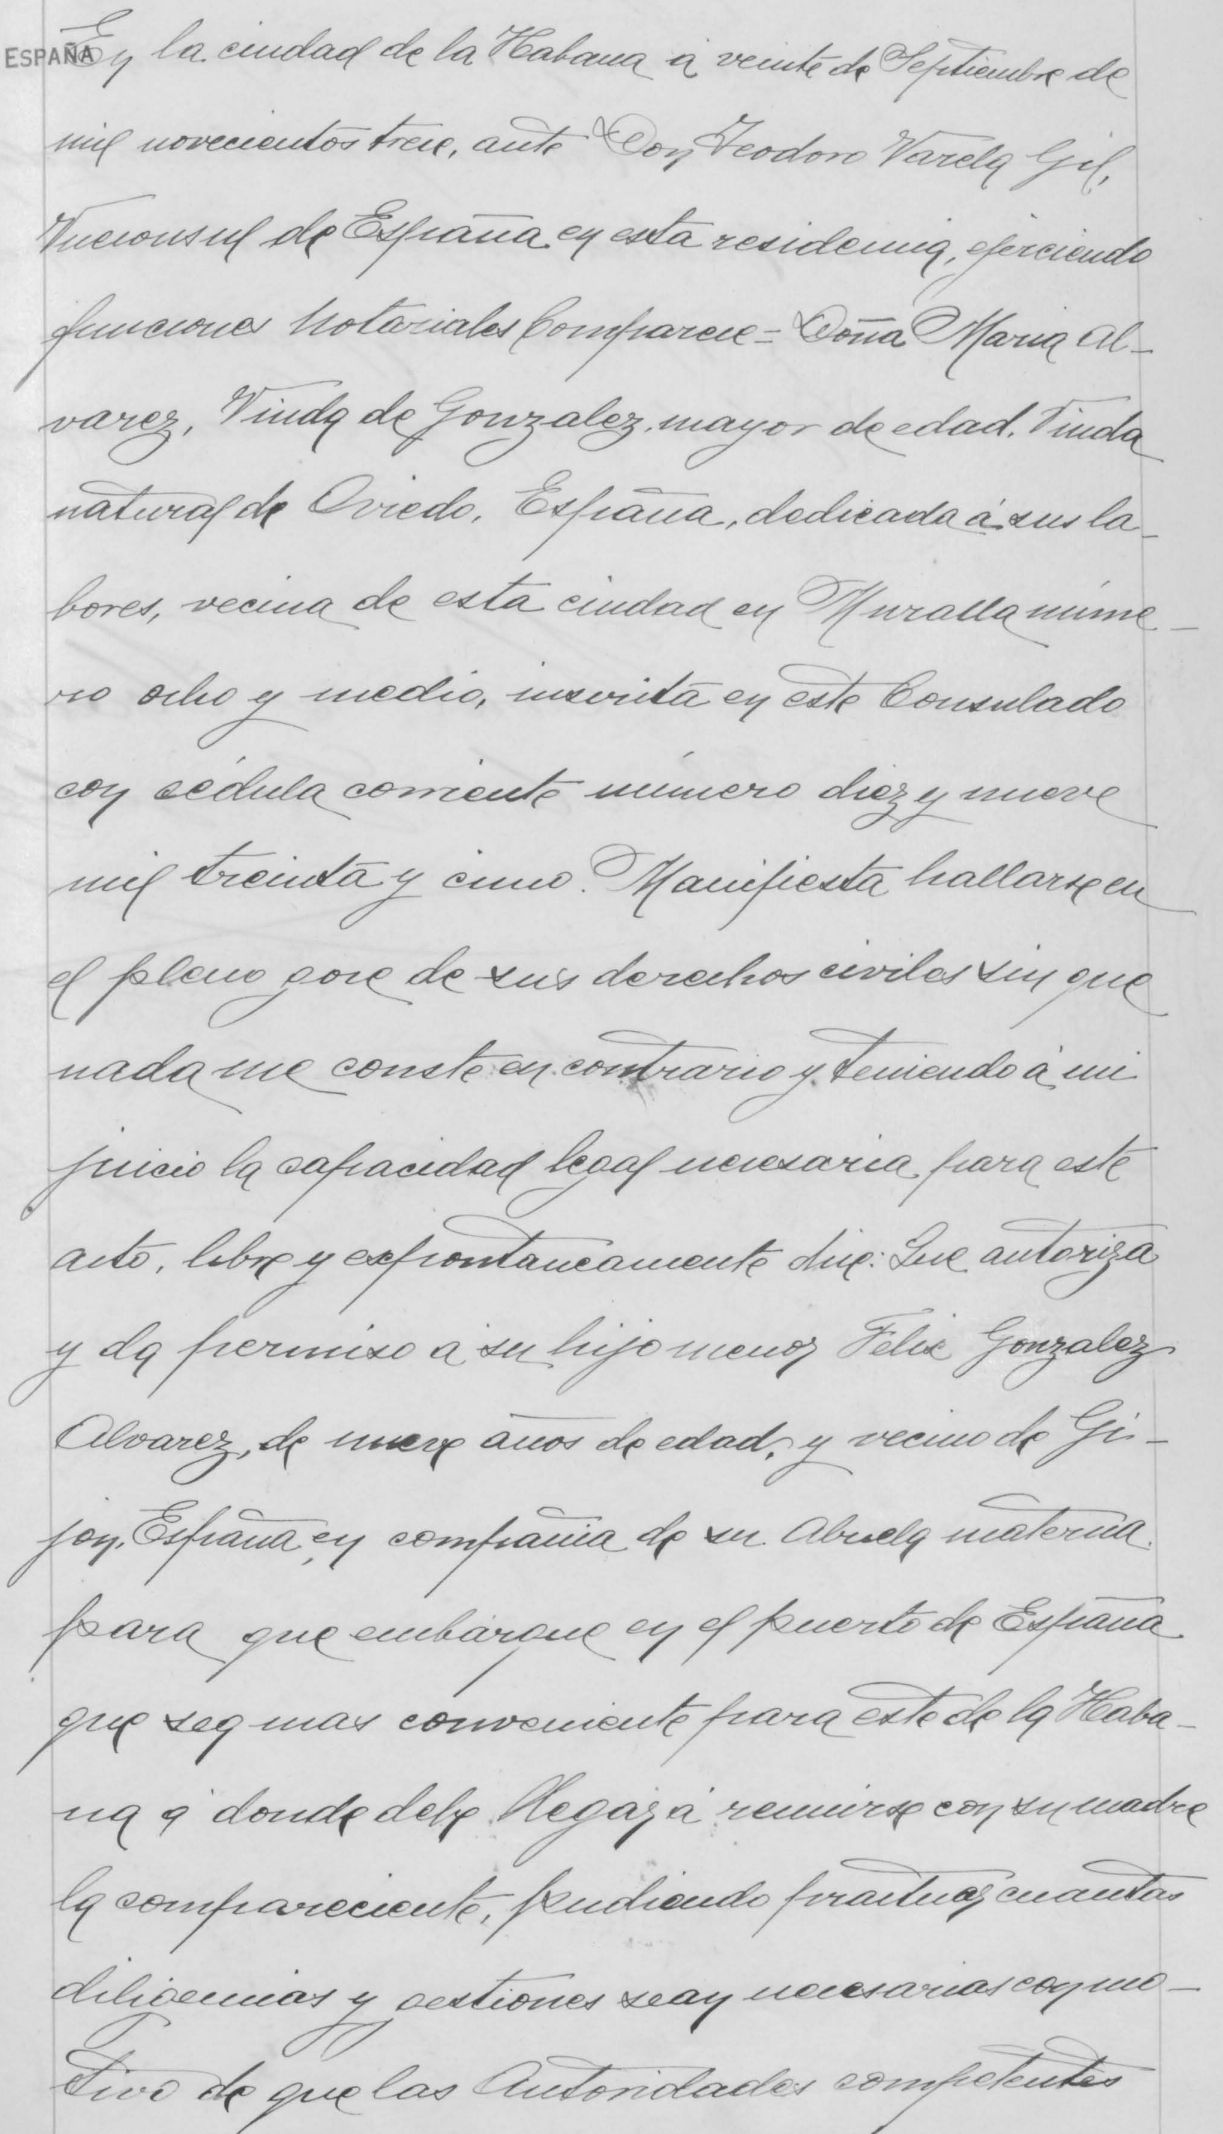 ESPAÑA
En la ciudad de la Habana á veinte de Septiembre de
mil novecientos trece, ante Don Teodoro Varela Gil,
Vicecónsul de España en esta residencia, ejerciendo
funciones notariales Comparece = Doña Maria Al-
varez, Viuda de Gonzalez, mayor de edad, Viuda
natural de Oviedo, España, dedicada á sus la-
bores, vecina de esta ciudad en Muralla núme-
ro ocho y medio, inscrita en este Consulado
con cédula corriente número diez y nueve
mil treinta y cinco. Manifiesta hallarse en
el pleno goce de sus derechos civiles sin que
nada me conste en contrario y teniendo á mi
juicio la capacidad legal necesaria para este
acto, libre y espontaneamente dice: Que autoriza
y da permiso á su hijo menor Felix Gonzalez
Alvarez, de nueve años de edad, y vecino de Gi-
jon, España, en compañia de su Abuela materna
para que embarque en el puerto de España
que sea mas conveniente para este de la Haba-
na á donde debe llegar á reunirse con su madre
la compareciente, pudiendo practicar cuantas
diligencias y gestiones sean necesarias con mo-
tivo de que las Autoridades competentes